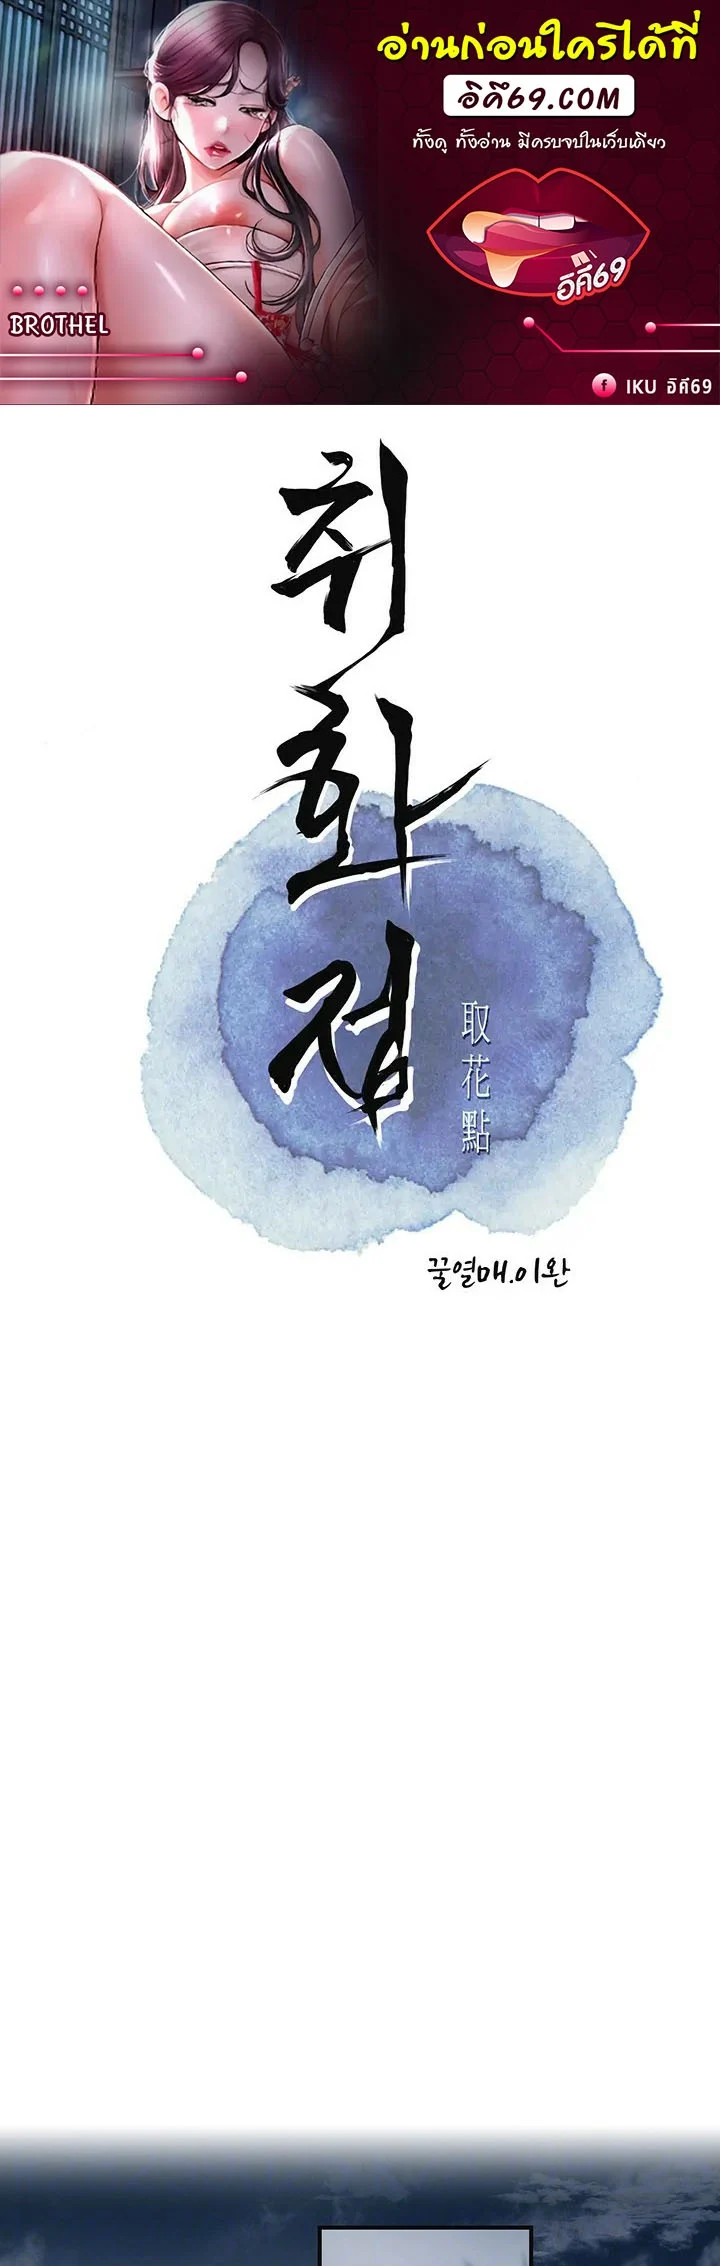 อ่านก่อนใครได้ที่
อิคึ69.COM
ทั้งดู ทั้งอ่าน มีครบจบในเว็บเดียว
อิคึ69
BROTHEL
f IKU อิคึ69
취
화
점
取
花
點
꿀열매.이완